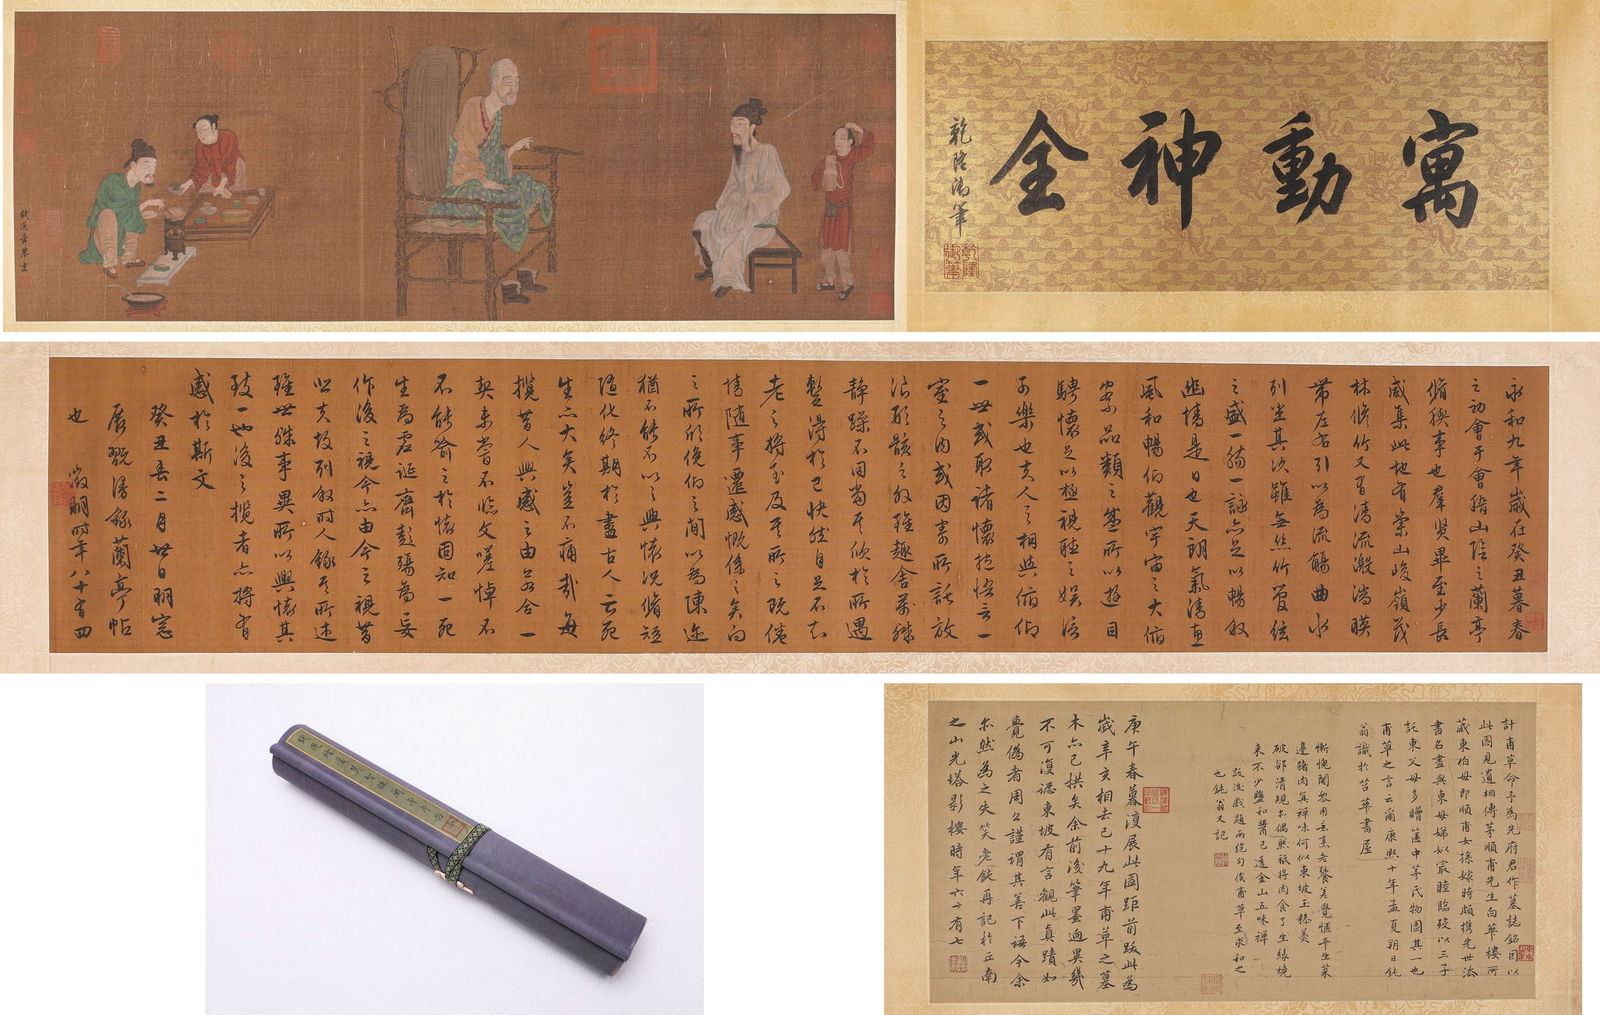 寓動神全
乾隆御筆
乾隆御筆
錢選舜舉畫
永和九年歲在癸丑暮春
之初會于會稽山陰之蘭亭
脩禊事也羣賢畢至少長
咸集此地有崇山峻嶺茂
林脩竹又有清流激湍暎
帶左右引以為流觴曲水
列坐其次雖無絲竹管絃
之盛一觴一詠亦足以暢敘
幽情是日也天朗氣清惠
風和暢仰觀宇宙之大俯
察品類之盛所以遊目
騁懷足以極視聽之娛信
可樂也夫人之相與俯仰
一世或取諸懷抱悟言一
室之內或因寄所託放
浪形骸之外雖趣舍萬殊
靜躁不同當其欣於所遇
暫得於己快然自足不知
老之將至及其所之既倦
情隨事遷感慨係之矣向
之所欣俛仰之間以為陳迹
猶不能不以之興懷況脩短
隨化終期於盡古人云死
生亦大矣豈不痛哉每
攬昔人興感之由若合一
契未嘗不臨文嗟悼不
不能喻之於懷固知一死
生為虛誕齊彭殤為妄
作後之視今亦由今之視昔
悲夫故列敘時人錄其所述
雖世殊事異所以興懷其
致一也後之攬者亦將有
感於斯文
癸丑春二月廿日明窓
展翫漫錄蘭亭帖
也 徵明時年八十有四
計甫草命予為先府君作墓誌銘因以
此圖見遺相傳茅順甫先生白華樓所
藏東伯母即順甫女孫嫁時頗携先世法
書名畫與東母娣姒最睦臨歿以三子
託東父母多贈篋中茅氏物圖其一也
甫草之言云爾康熙十年孟夏朔日鈍
翁識於苕華書屋
慚愧闍黎用意烹老饕差覺愜平生菜
邊豬肉真禪味何似東坡玉糝羹
破郤清規出偶然秪將肉食了生緣燒
來不少鹽和醬已遠金山五味禪
跋後戲題兩絕句俟甫草至求和之
也鈍翁又記
庚午春暮復展此圖距前跋此為
歲辛亥相去已十九年甫草之墓
木亦已拱矣余前後筆墨迥異幾
不可復認東坡有言觀此真蹟如
覺偽者周公謹謂其善下語今余
亦然為之失笑老鈍再記於丘南
之山光塔影樓時年六十有七